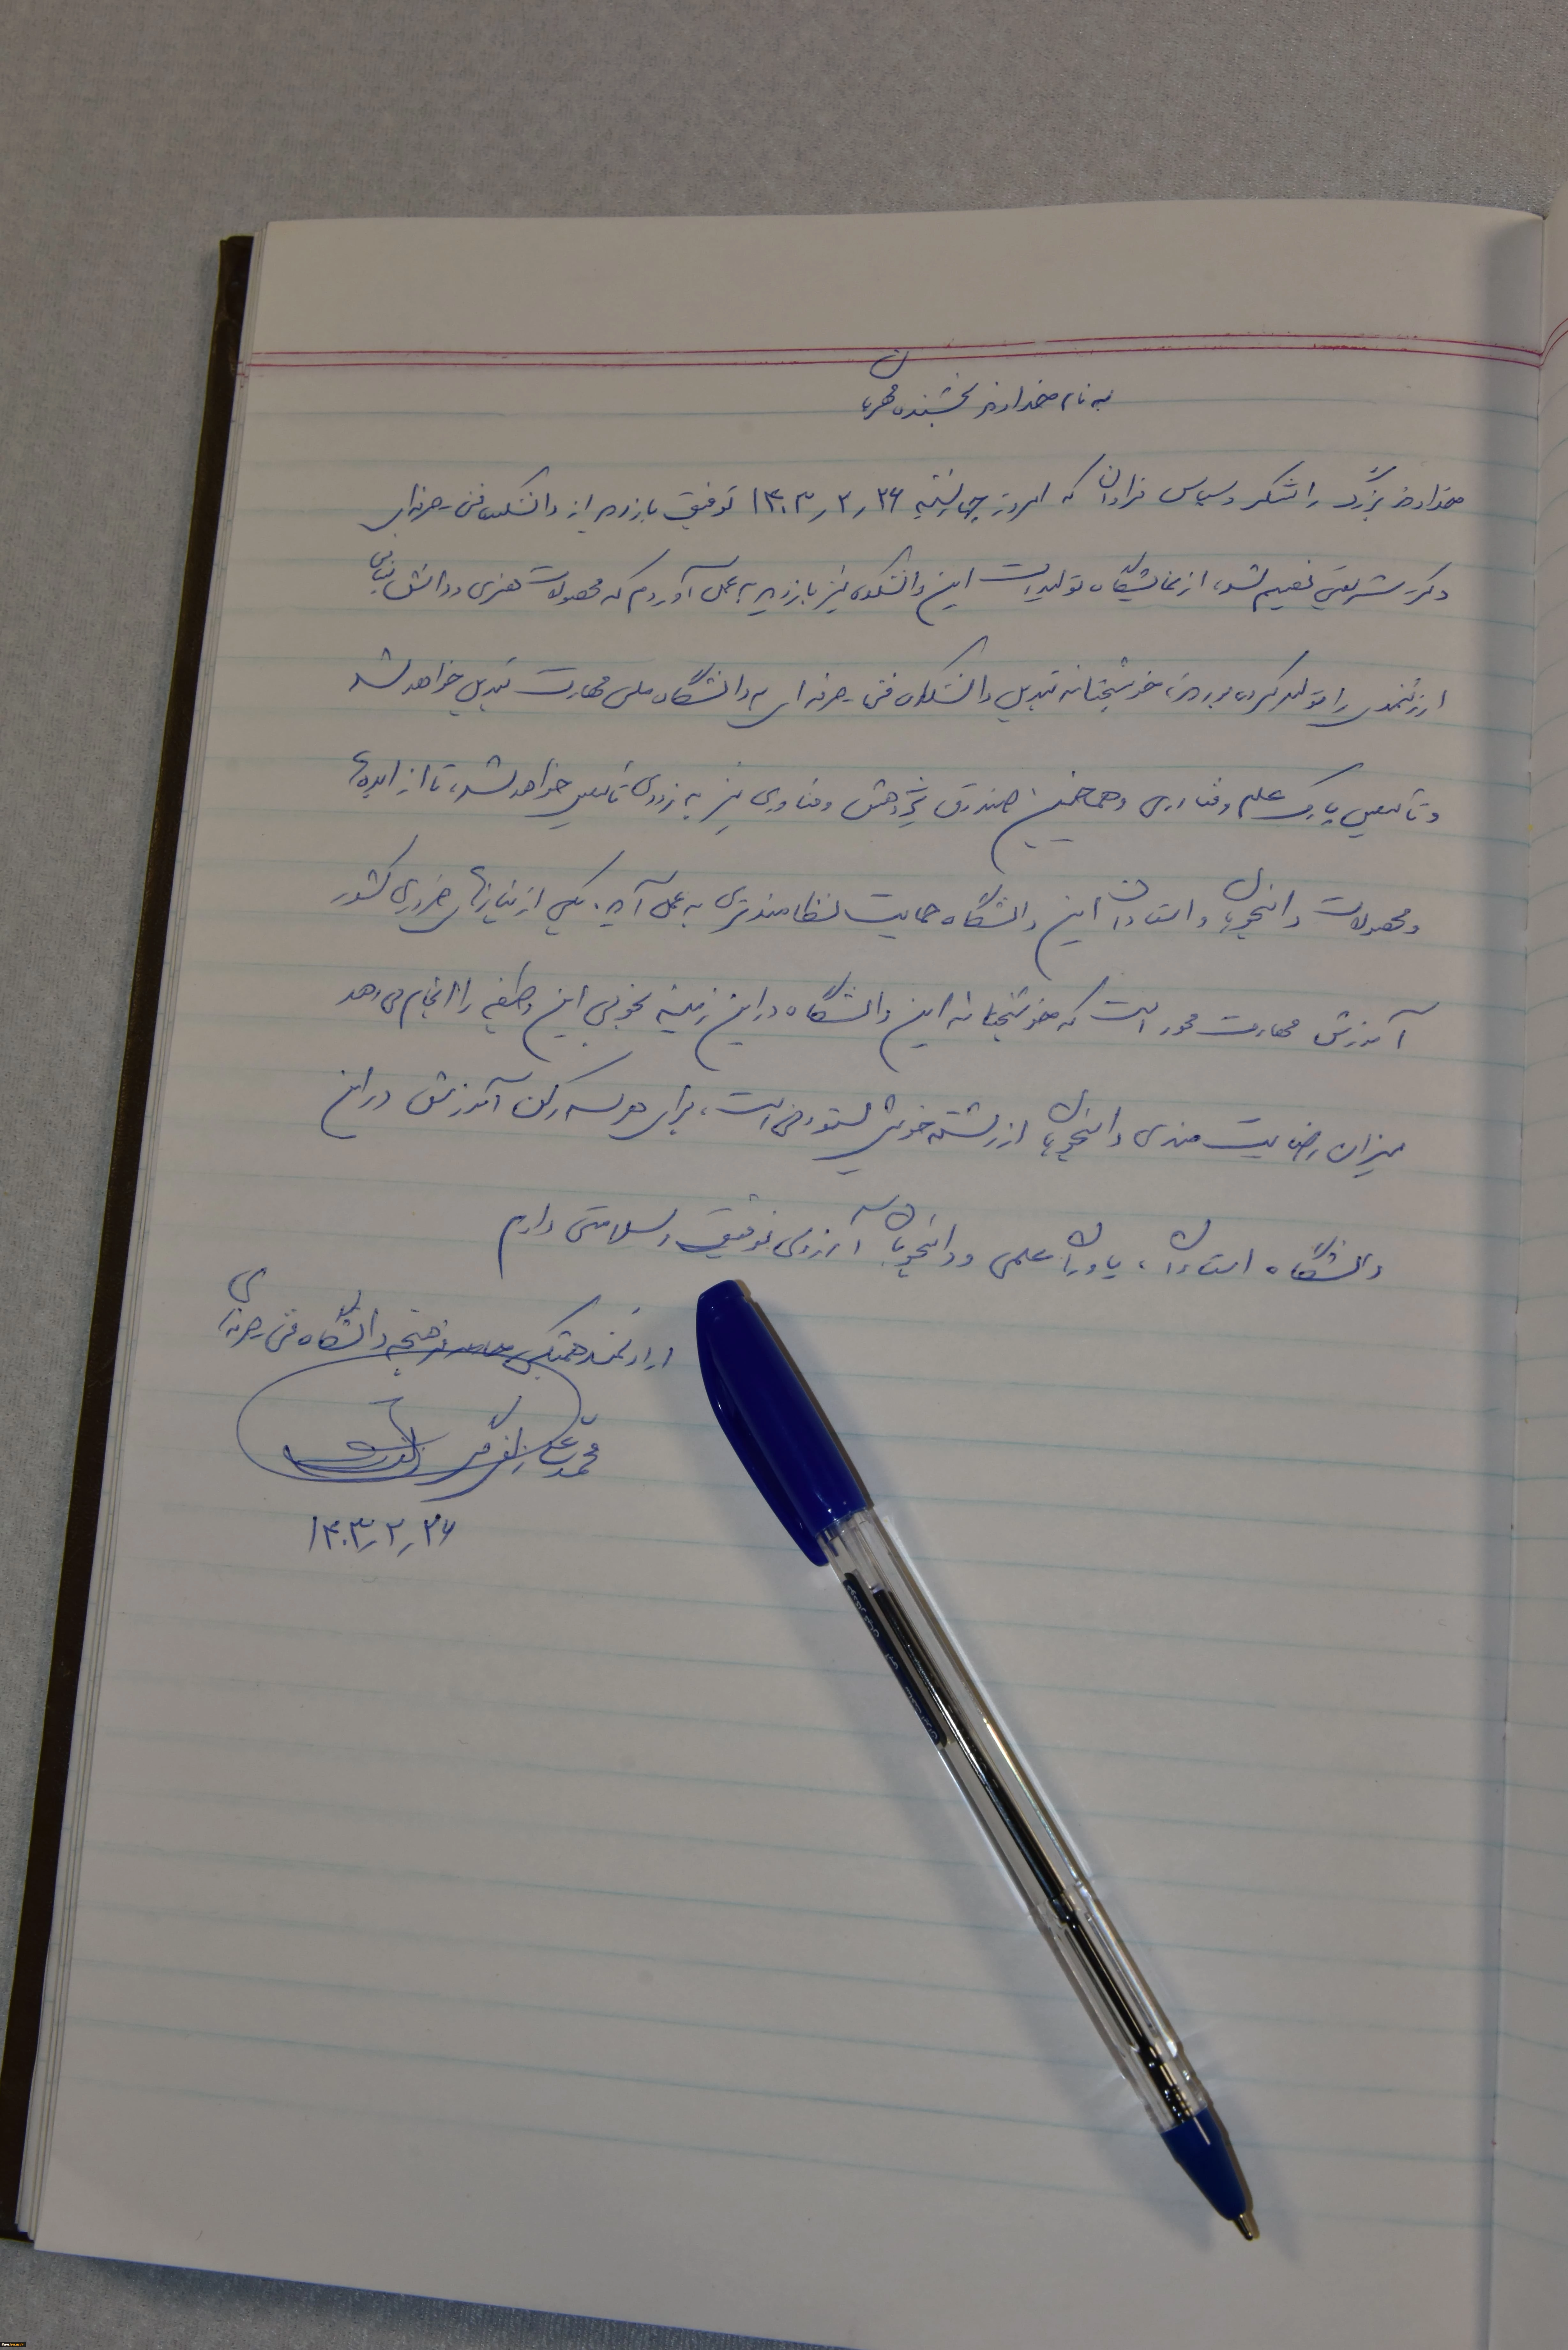 به نام خداوند بخشنده مهربان
خداوند بزرگ را شکر و سپاس فراوان که امروز چهارشنبه ۱۴۰۳٫۲٫۲۶ توفیق بازدید از دانشکده فنی حرفه‌ای
دکتر شریعتی نصیبم شد، از نمایشگاه تولیدات این دانشکده نیز بازدید به عمل آوردم که محصولات هنری و دانش بنیانی
ارزشمندی را تولید کرده بودند، خوشبختانه تبدیل دانشکده فنی حرفه ای به دانشگاه ملی مهارت تبدیل خواهد شد
و تاسیس پارک علم و فناوری و همچنین صندوق پژوهش و فناوری نیز به زودی تاسیس خواهد شد، تا از ایده‌های
و محصولات دانشجویان و استادان این دانشگاه حمایت نظامندتری به عمل آید. یکی از نیازهای ضروری کشور
آموزش مهارت محور است که خوشبختانه این دانشگاه در این زمینه بخوبی این وظیفه را انجام می‌دهد
میزان رضایت مندی دانشجویان از رشته خویش ستودنی است، برای هر سه رکن آموزش در این
دانشگاه استادان، یاوران علمی و دانشجویان آرزوی توفیق و سلامتی دارم
ارادتمند همتیکی فرهیخته دانشگاه فنی حرفه‌ای
محمدعلی زلفی گل
۱۴۰۳٫۲٫۲۶